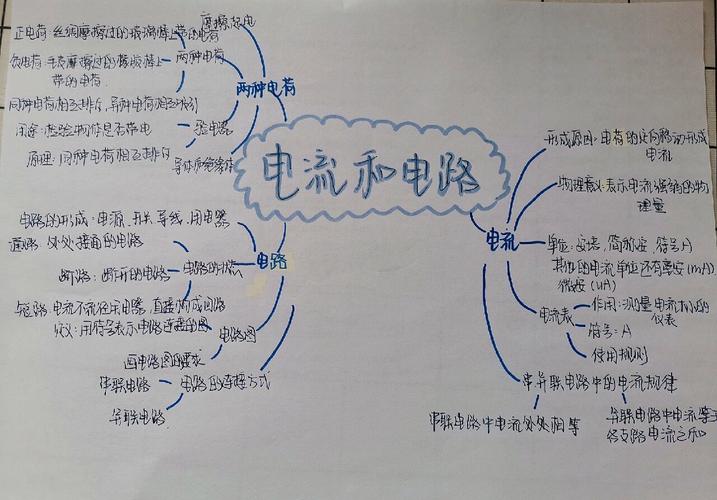 电流和电路
两种电荷
摩擦起电
两种电荷
正电荷：丝绸摩擦过的玻璃棒上带的电荷
负电荷：毛皮摩擦过的橡胶棒上
带的电荷
同种电荷相互排斥，异种电荷相互吸引
验电器
用途：检验物体是否带电
原理：同种电荷相互排斥
导体
绝缘体
电路
电路的形成：电源、开关、导线、用电器
电路的状态
通路：处处接通的电路
断路：断开的电路
短路：电流不流径用电器，直接构成回路
电路图
定义：用符号表示电路连接的图
画电路图的要求
电路的连接方式
串联电路
并联电路
电流
形成原因：电荷的定向移动形成
电流
物理意义：表示电流强弱的物
理量
单位：安培，简称安，符号A
其他的电流单位还有毫安(mA)
微安(uA)
电流表
作用：测量电流大小的
仪表
符号：A
使用规则
串并联电路中的电流规律
串联电路中电流处处相等
并联电路中电流等于
各支路电流之和